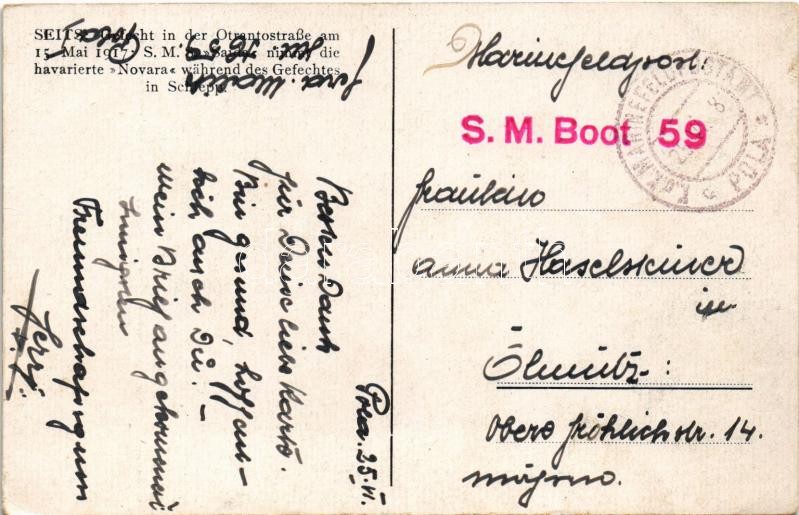 SEITS: Gefecht in der Otrantostraße am
15. Mai 1917: S. M. S. »Saida« nimmt die
havarierte »Novara« während des Gefechtes
in Schlepp.
Pola. 25. VI.
Besten Dank
für Deine liebe Karte.
Bin gesund, hoffent-
lich auch Du. –
Mein Brief angekommen?
Innigsten
Freundschaftsgruss
Marinefeldpost.
S. M. Boot 59
K.u.K. MARINEFELDPOSTAMT
POLA
Fräulein
Anna Haselsteiner
in
Ölmütz:
Obere Fröhlichstr. 14.
Mähren.